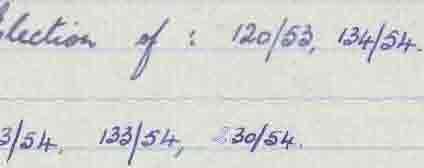 election of : 120/53, 134/54.
3/54, 133/54, 230/54.